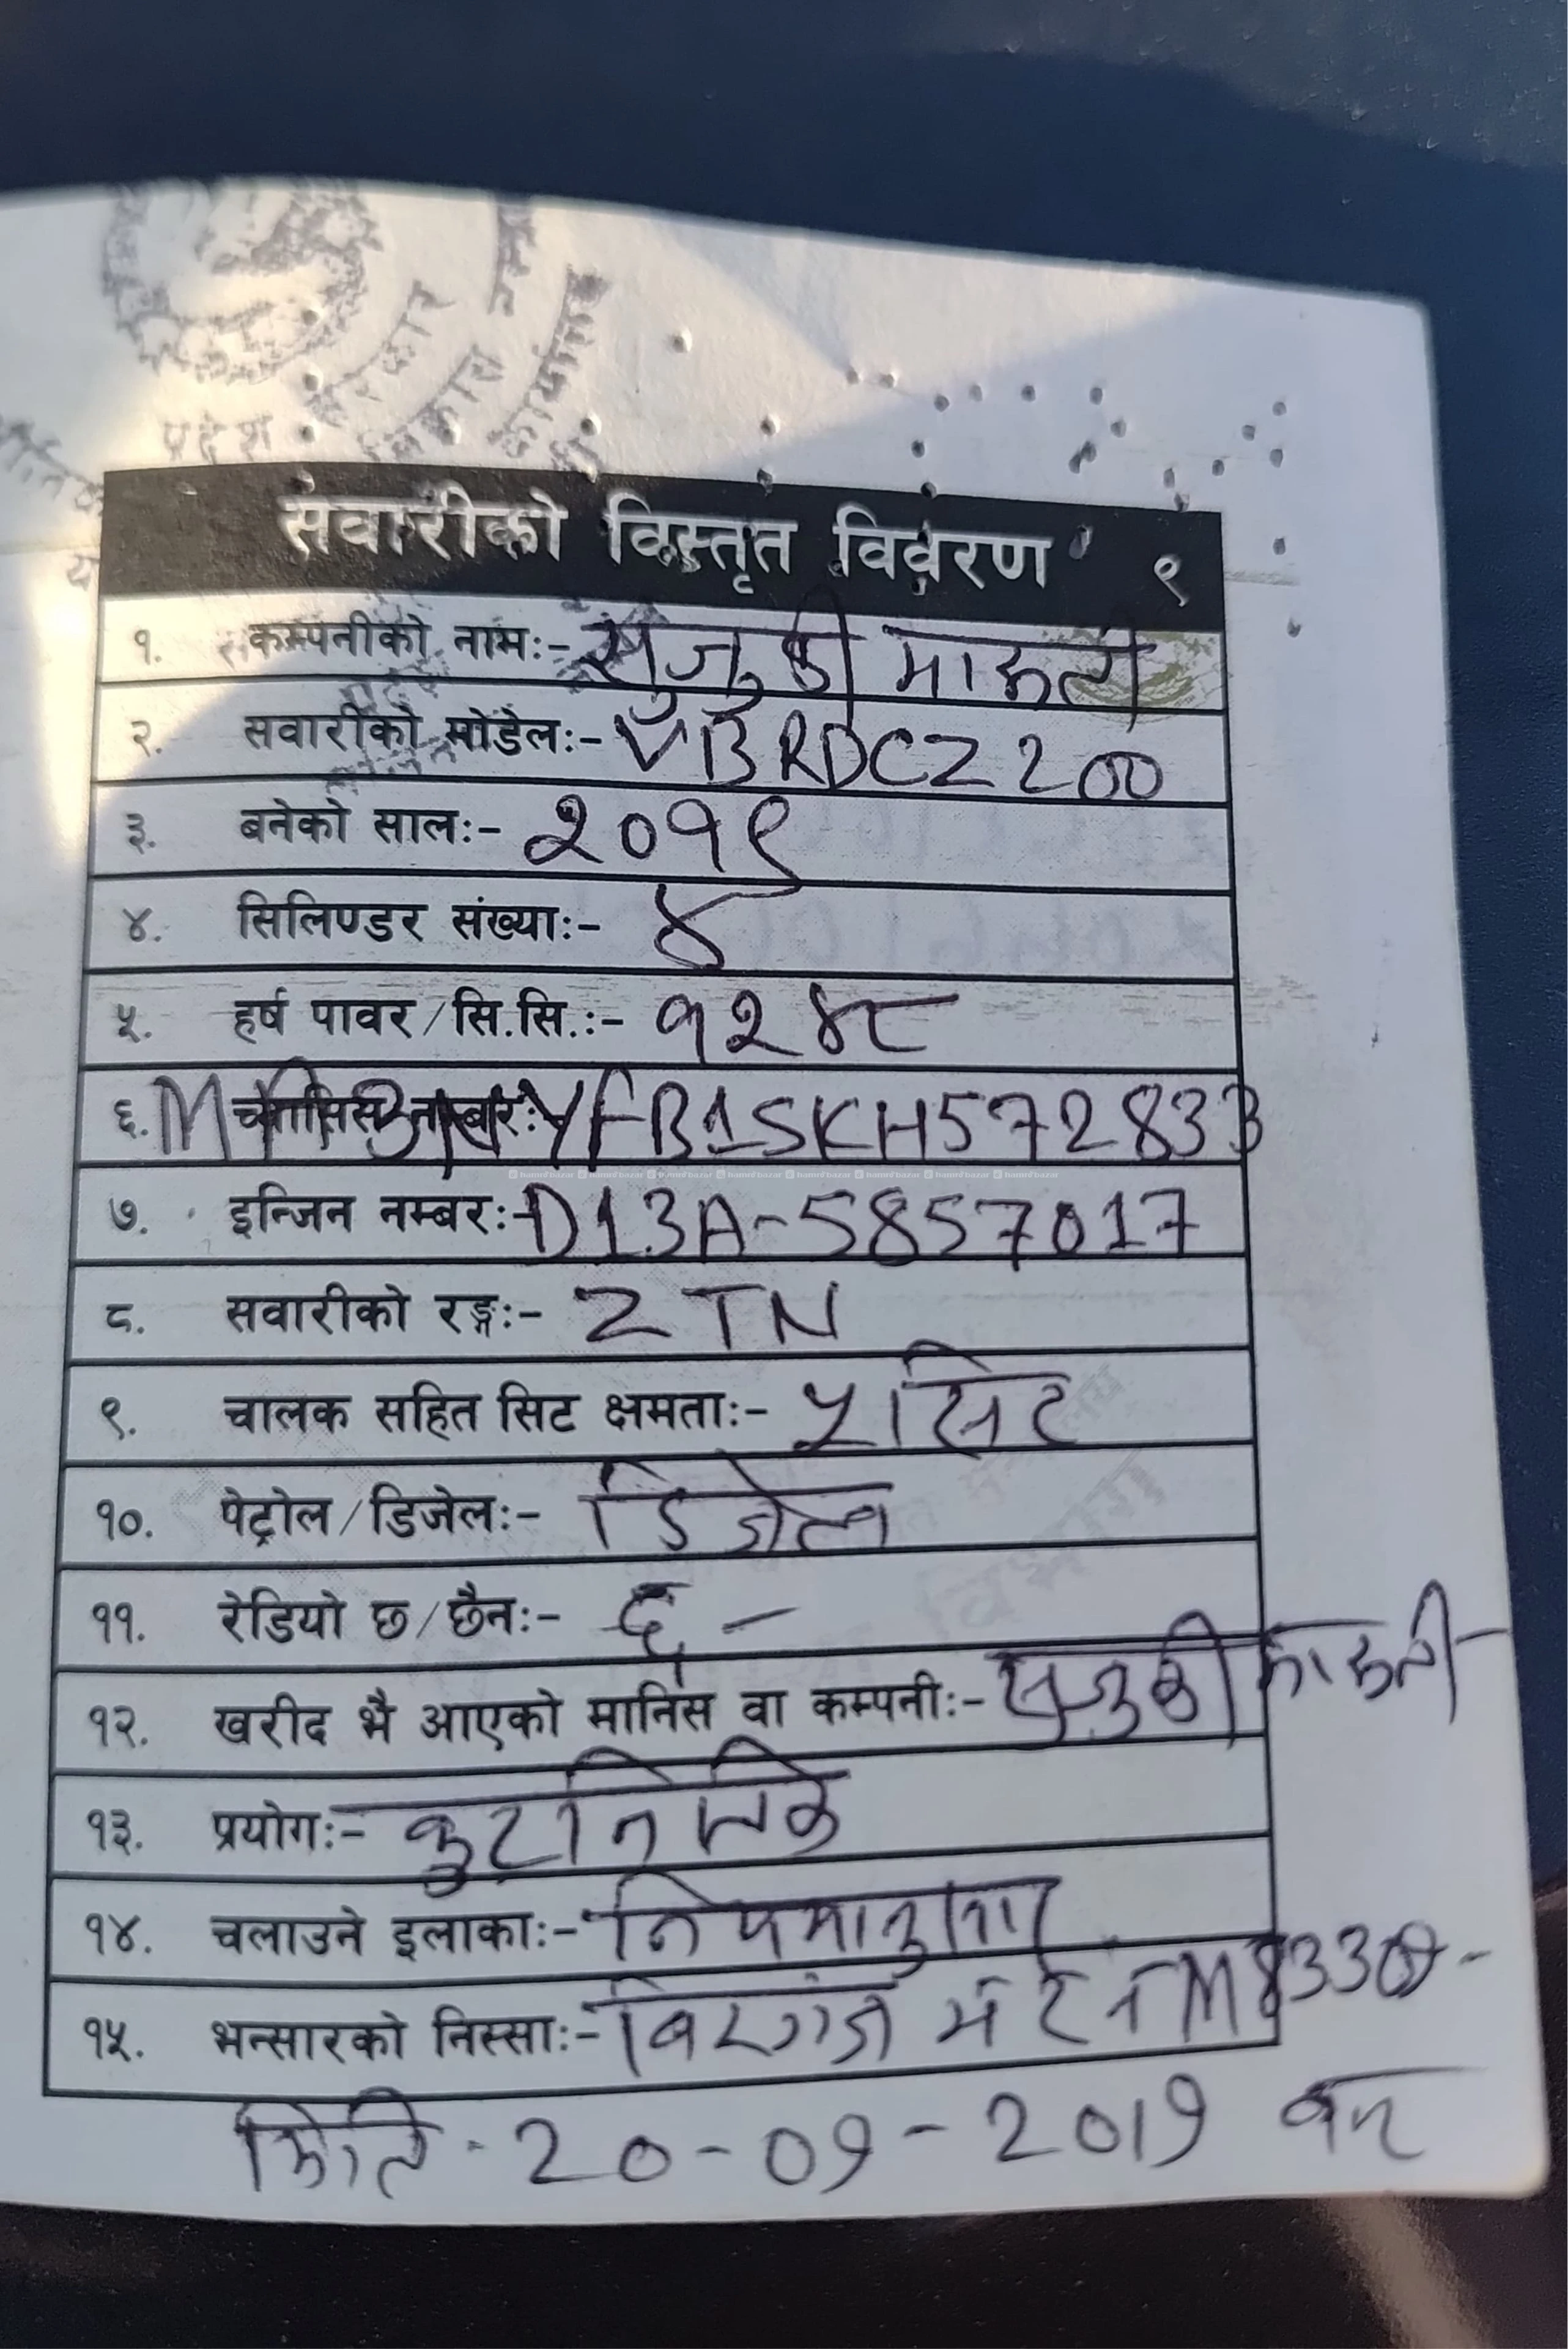 प्रदेश सरकार
सवारीको विस्तृत विवरण ९
१. कम्पनीको नामः- सुजुकी मारूती
२. सवारीको मोडेलः- VBRDCZ200
३. बनेको सालः- २०१९
४. सिलिण्डर संख्याः- ४
५. हर्ष पावर/सि.सि.ः- १२४८
६. च्यासिस नम्बरः YFB1SKH572833
७. इन्जिन नम्बरः- D13A-5857017
८. सवारीको रङ्गः- ZTN
९. चालक सहित सिट क्षमताः- ५ सिट
१०. पेट्रोल/डिजेलः- डिजेल
११. रेडियो छ/छैनः- छ -
१२. खरीद भै आएको मानिस वा कम्पनीः- सुजुकी मारूती
१३. प्रयोगः-
१४. चलाउने इलाकाः- नियमानुसार
१५. भन्सारको निस्साः- विरगंज
मिति - 20-09-2019